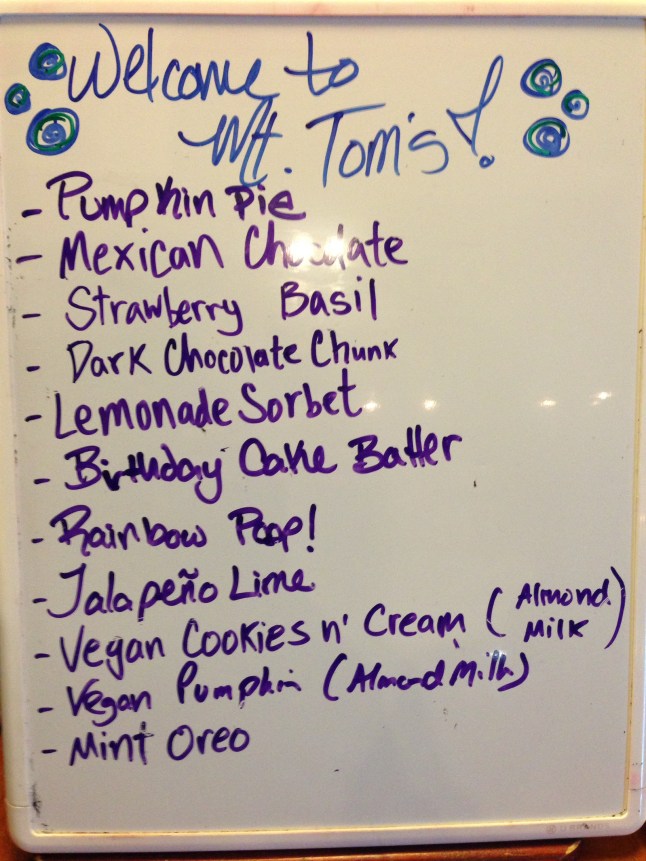 Welcome to
Mt. Tom's!
- Pumpkin Pie
- Mexican Chocolate
- Strawberry Basil
- Dark Chocolate Chunk
- Lemonade Sorbet
- Birthday Cake Batter
- Rainbow Poop!
- Jalapeño Lime
- Vegan Cookies n' Cream (Almond Milk)
- Vegan Pumpkin (Almond Milk)
- Mint Oreo